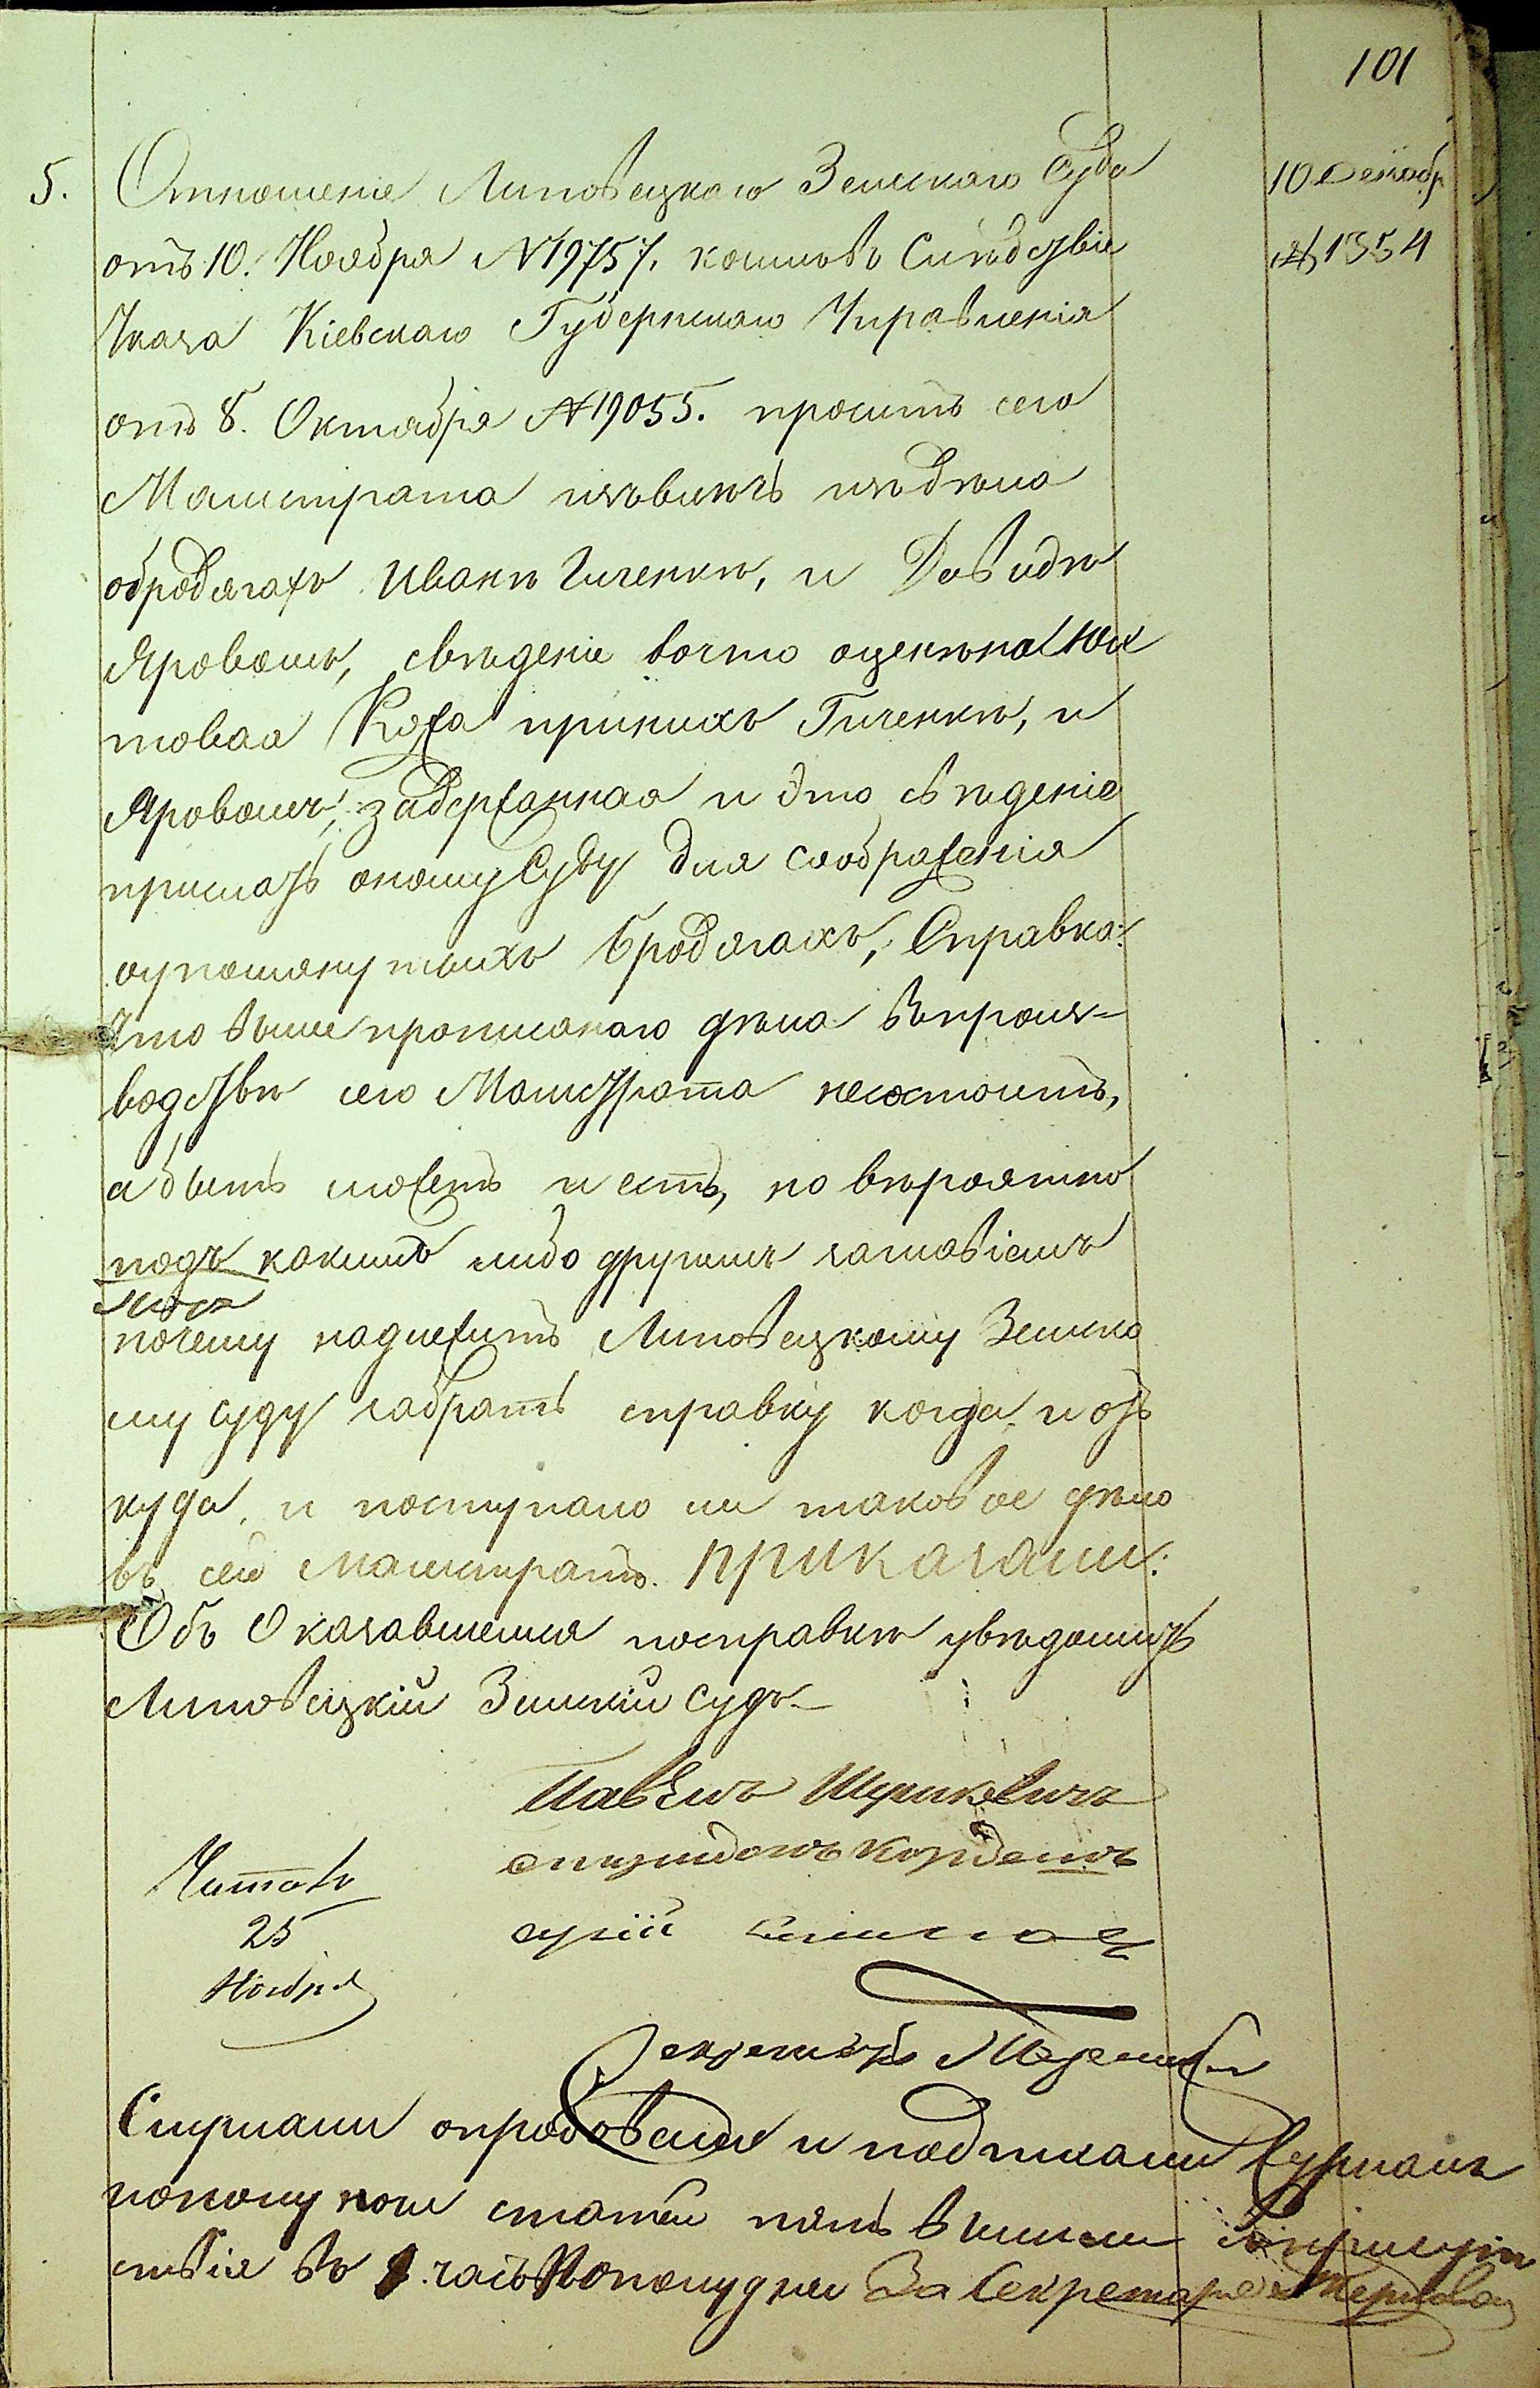 101
5. Отношеніе Липовецкаго Земскаго Суда
10 Декабр
отъ 10. Ноября №19757. коимъ въ Слѣдствіе
№ 1354
Указа Кіевскаго Губернскаго Управленія
отъ 8. Октября №19055. проситъ сего
Магистрата извлечь изъ дѣла
обродягахъ Иванѣ Гиченкѣ, и Давидѣ
Яровомъ, свѣденіе вочто оценена
товая Кожа принихъ Гиченкѣ, и
Яровомъ, задержанная и это свѣденіе
прислать оному Суду для соображенія
оупомянутыхъ бродягахъ, Справка:
Что выше прописанаго дѣла впроиз-
водствѣ сего Магистрата несостоитъ,
а быть можетъ и есть, но вѣроятно
подъ какимъ либо другимъ заглавіемъ
почему надлежитъ Липовецкому Земско
му суду забрать справку когда, и отъ
куда, и поступало ли таковое дѣло
въ сей Магистратъ. приказали:
Объ Оказавшемся посправкѣ увѣдомить
Липовецкій Земскій Судъ
Павелъ
Читалъ
25
Ноября
Секретарь
Слушали опробовали и подписали Журналъ
пополуд
статей пять вышли
ствія въ часъ Пополудни За Секретаря